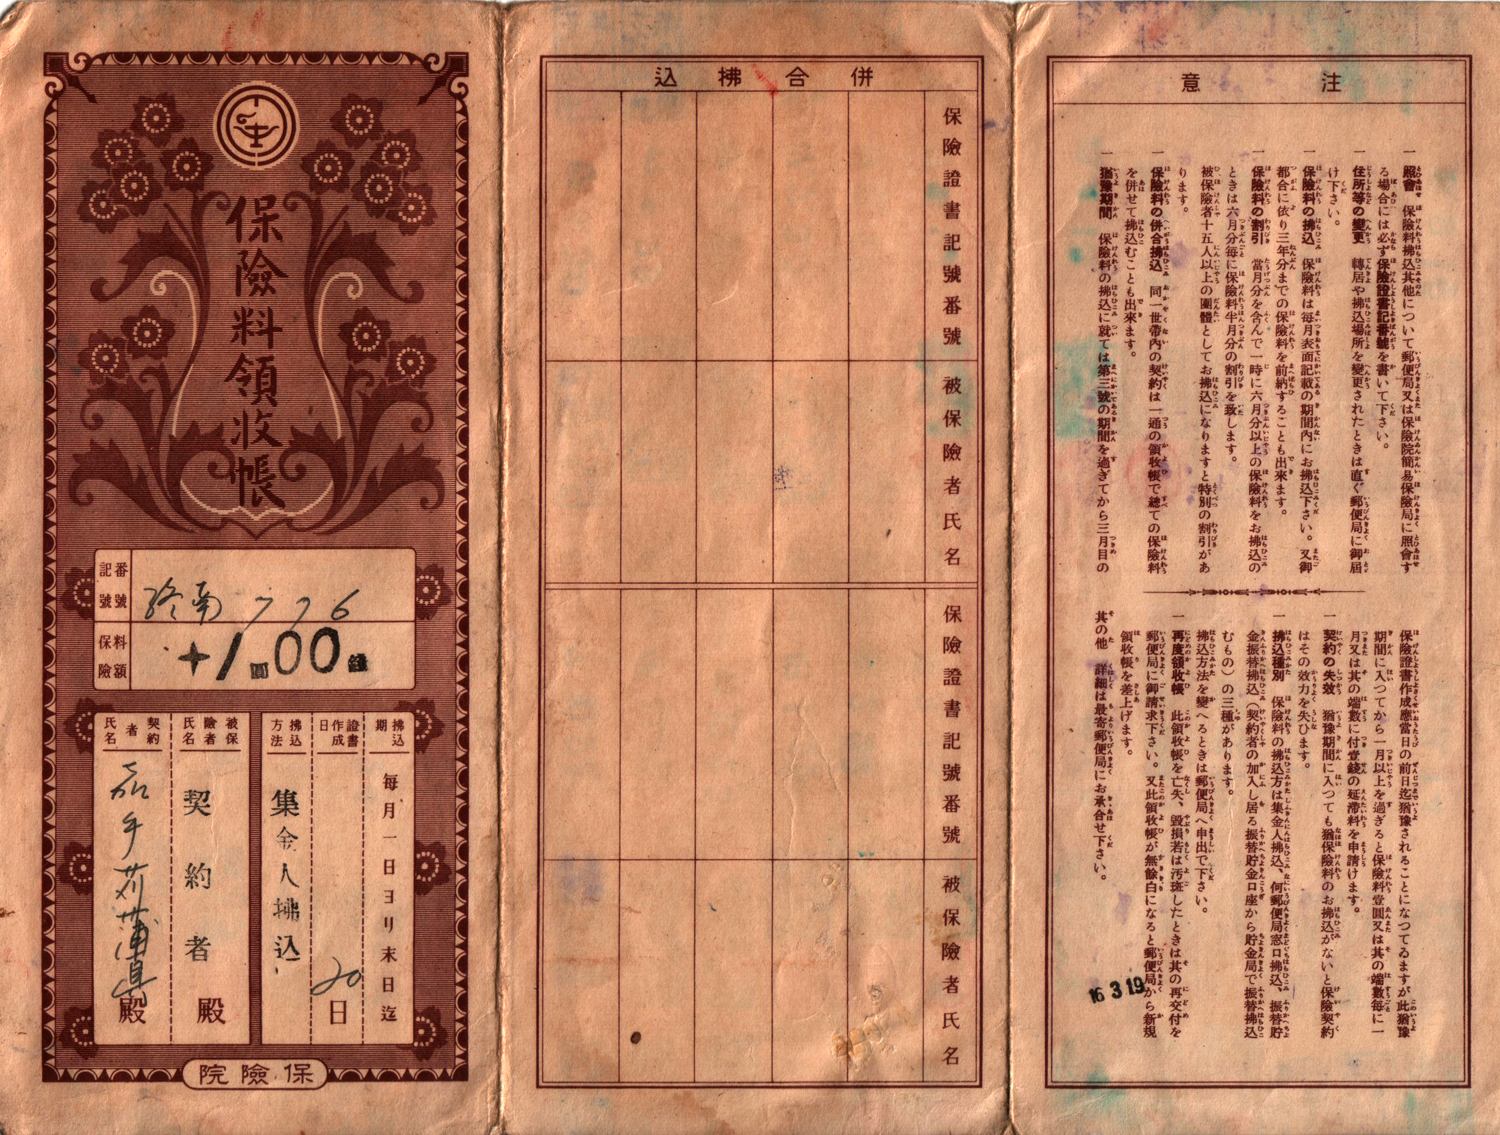 保險料領收帳
記號番號
南 776
保險料額
+1圓00錢
拂込期
每月一日ヨリ末日迄
證書作成日
20日
拂込方法
集金人拂込
被保險者氏名
契約者殿
契約者氏名
殿
保險院
併合拂込
保險證書記號番號
被保險者氏名
保險證書記號番號
被保險者氏名
注意
一 照會 保險料拂込其他について郵便局又は保險院簡易保險局に照會す
る場合には必ず保險證書記番號を書いて下さい。
一 住所等の變更 轉居や拂込場所を變更されたときは直ぐ郵便局に御屆
け下さい。
一 保險料の拂込 保險料は每月表面記載の期間內にお拂込下さい。又御
都合に依り三年分までの保險料を前納することも出來ます。
一 保險料の割引 當月分を含んで一時に六月分以上の保險料をお拂込の
ときは六月分每に保險料半月分の割引を致します。
被保險者十五人以上の團體としてお拂込になりますと特別の割引があ
ります。
一 保險料の併合拂込 同一世帶內の契約は一通の領收帳で總ての保險料
を併せて拂込むことも出來ます。
一 猶豫期間 保險料の拂込に就ては第三號の期間を過ぎてから三月目の
保險證書作成應當日の前日迄猶豫されることになつてゐますが此猶豫
期間に入つてから一月以上を過ぎると保險料壹圓又は其の端數每に一
月又は其の端數に付壹錢の延滯料を申請けます。
一 契約の失效 猶豫期間に入つても猶保險料のお拂込がないと保險契約
はその效力を失ひます。
一 拂込種別 保險料の拂込方は集金人拂込、何郵便局窓口拂込、振替貯
金振替拂込(契約者の加入し居る振替貯金口座から貯金局で振替拂込
むもの)の三種があります。
拂込方法を變へるときは郵便局へ申出で下さい。
一 再度領收帳 此領收帳を亡失、毀損若は汚斑したときは其の再交付を
郵便局に御請求下さい。又此領收帳が無餘白になると郵便局から新規
領收帳を差上げます。
其の他 詳細は最寄郵便局にお承合せ下さい。
16 3 19